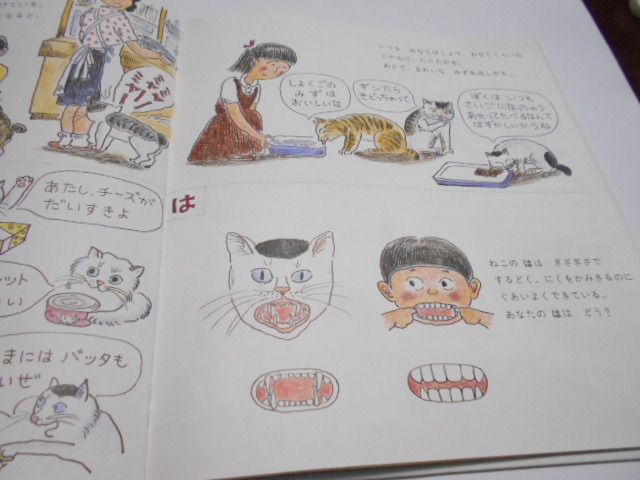 あたし、チーズが
だいすきよ
ット
い
まには バッタも
いぜ
いつも おなじばしょで、おなじくらいの
じかんに、たーべる。
あとで、きれいな みずもほしがる。
しょくごの
みずは
おいしいな
ギンたら
きどっちゃって
ぼくは、いつも
さいごになっちゃう
あせってたべるなんて
はずかしいからね
は
ねこの はは ぎざぎざで
するどく、にくをかみきるのに
ぐあいよくできている。
あなたの はは どう？